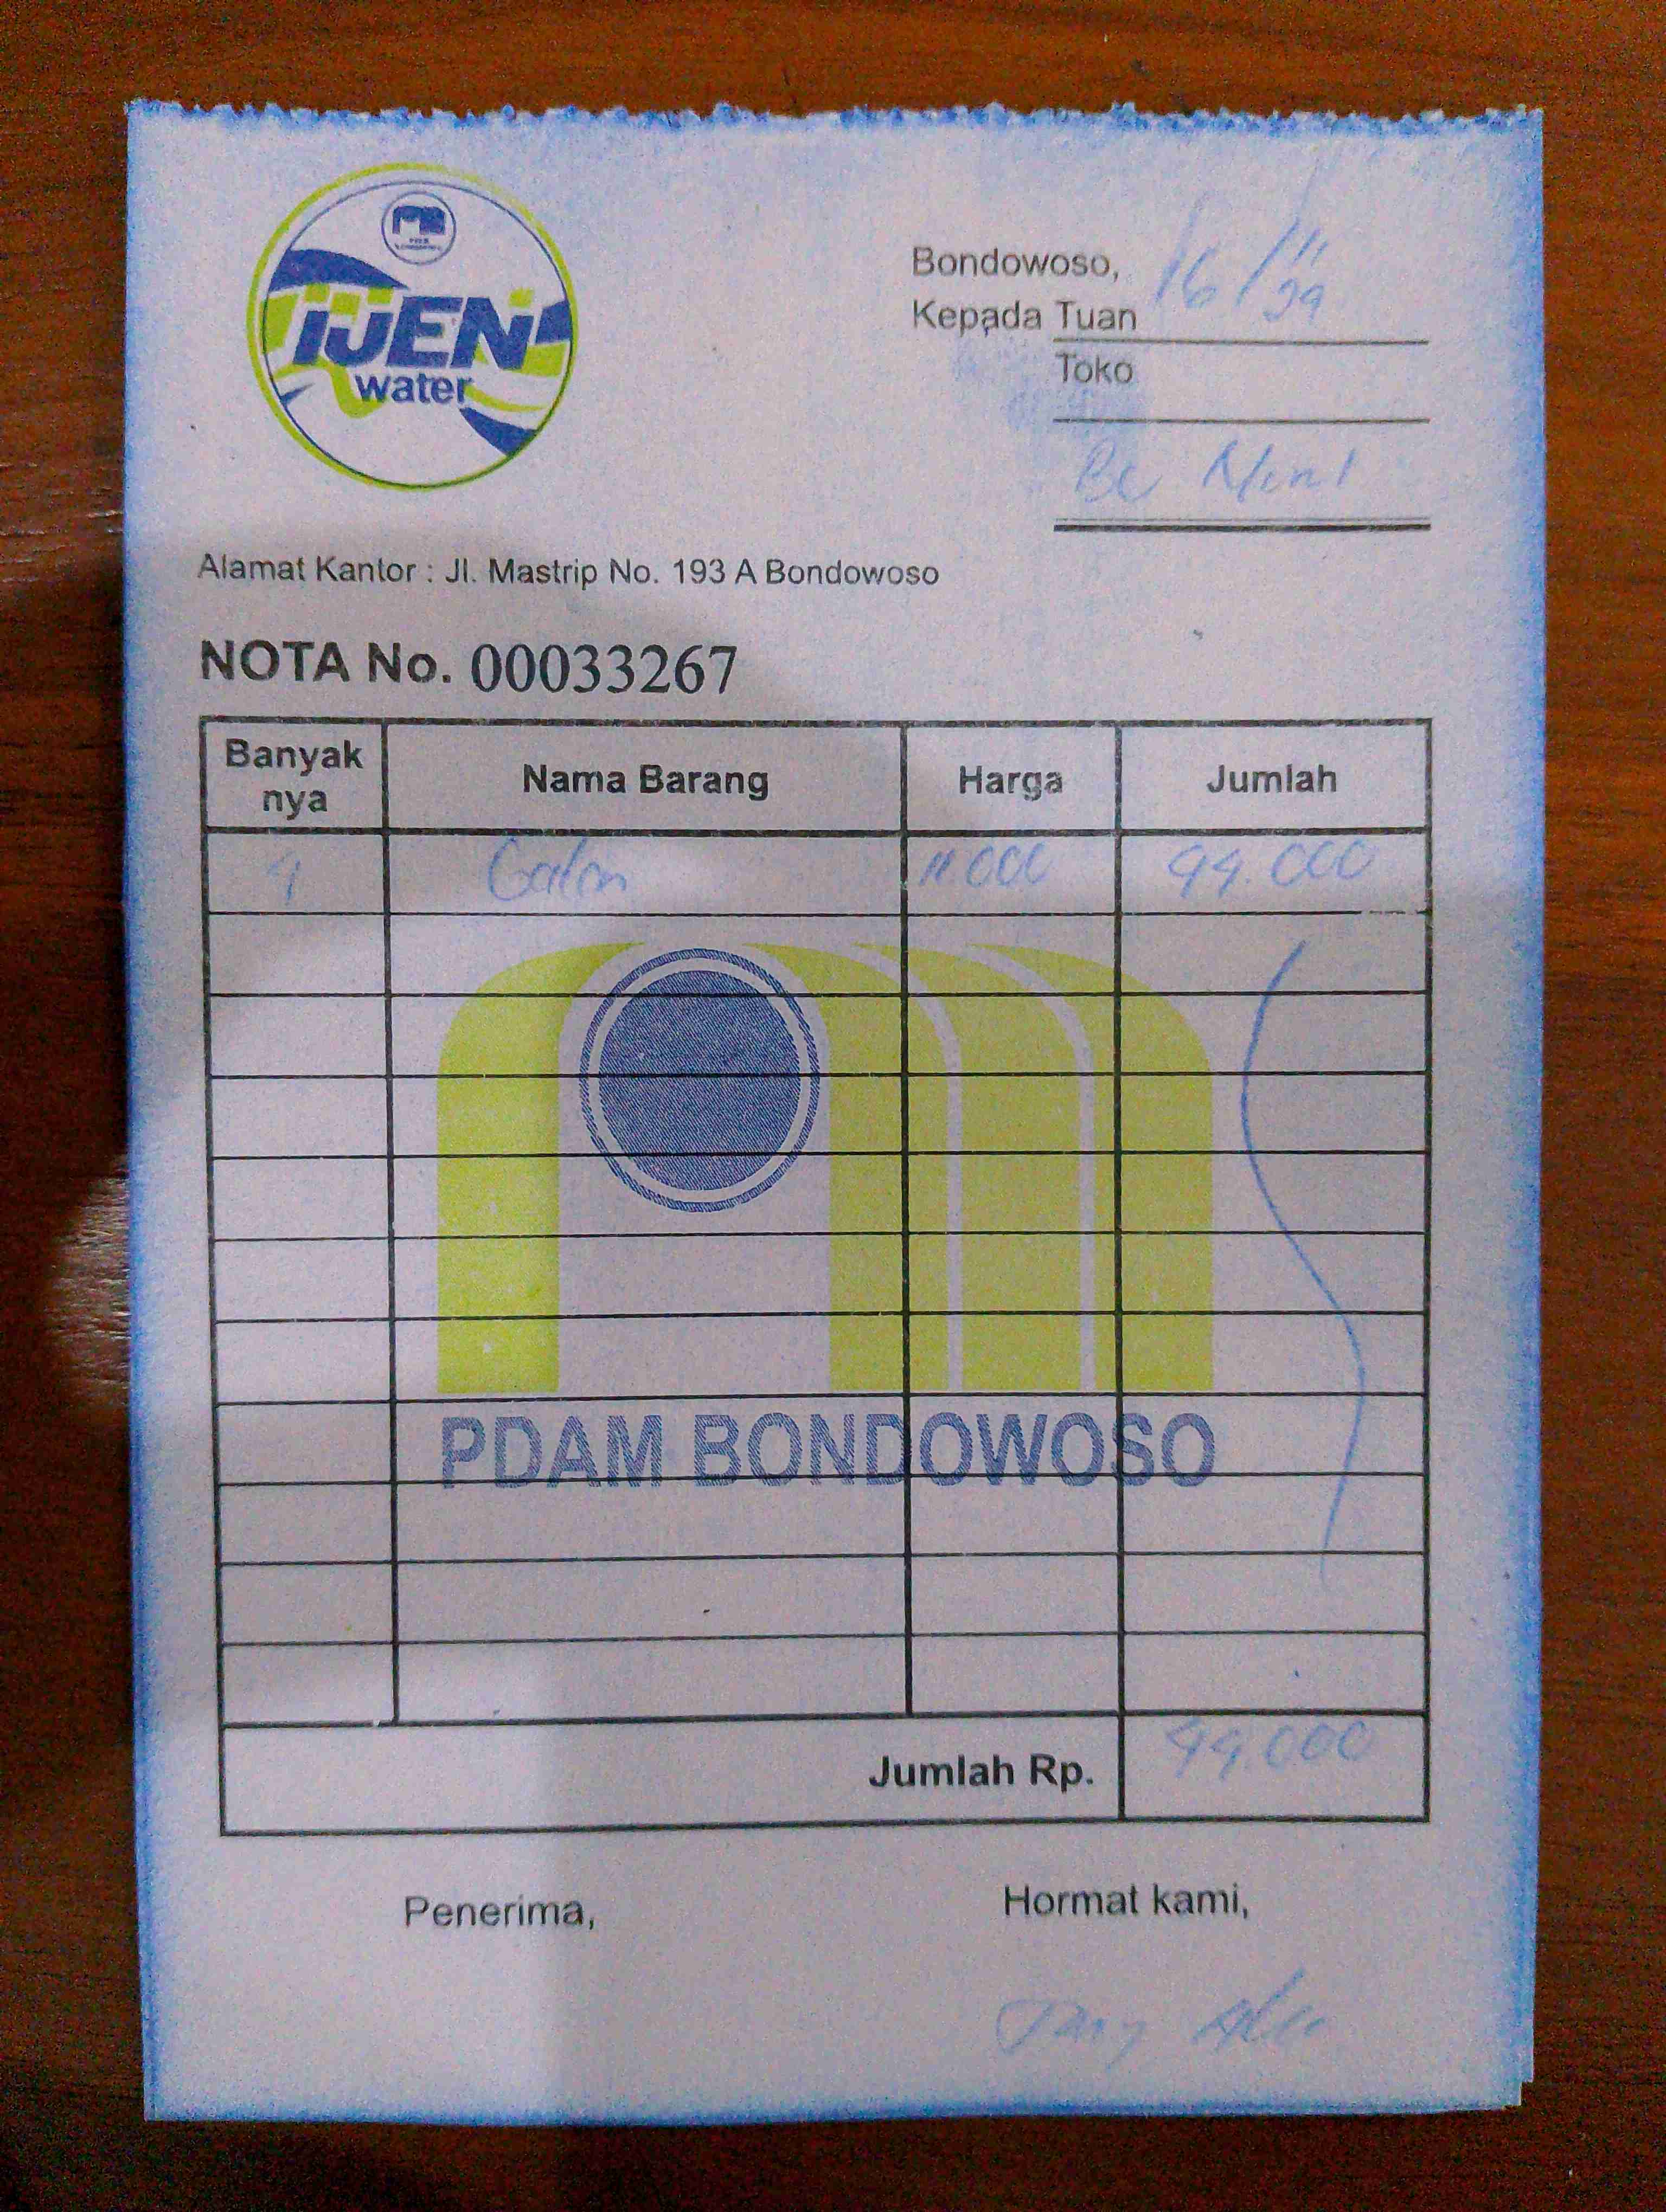 iJEN
water
Bondowoso, 16/11
Kepada Tuan
Toko
Alamat Kantor : Jl. Mastrip No. 193 A Bondowoso
NOTA No. 00033267
Banyak nya Nama Barang Harga Jumlah
4 Galon 11.000 44.000
PDAM BONDOWOSO
Jumlah Rp. 44.000
Penerima, Hormat kami,